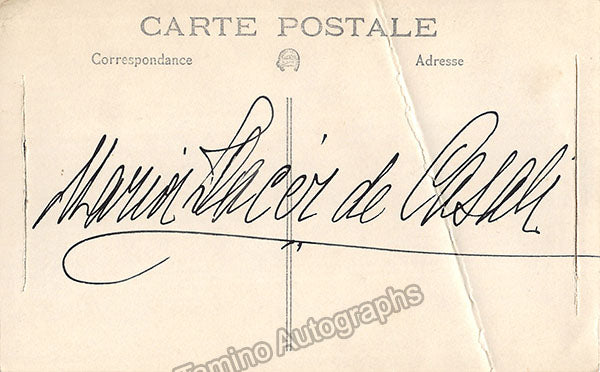 CARTE POSTALE
Correspondance Adresse
Maria Llacér de Casali
Tamino Autographs